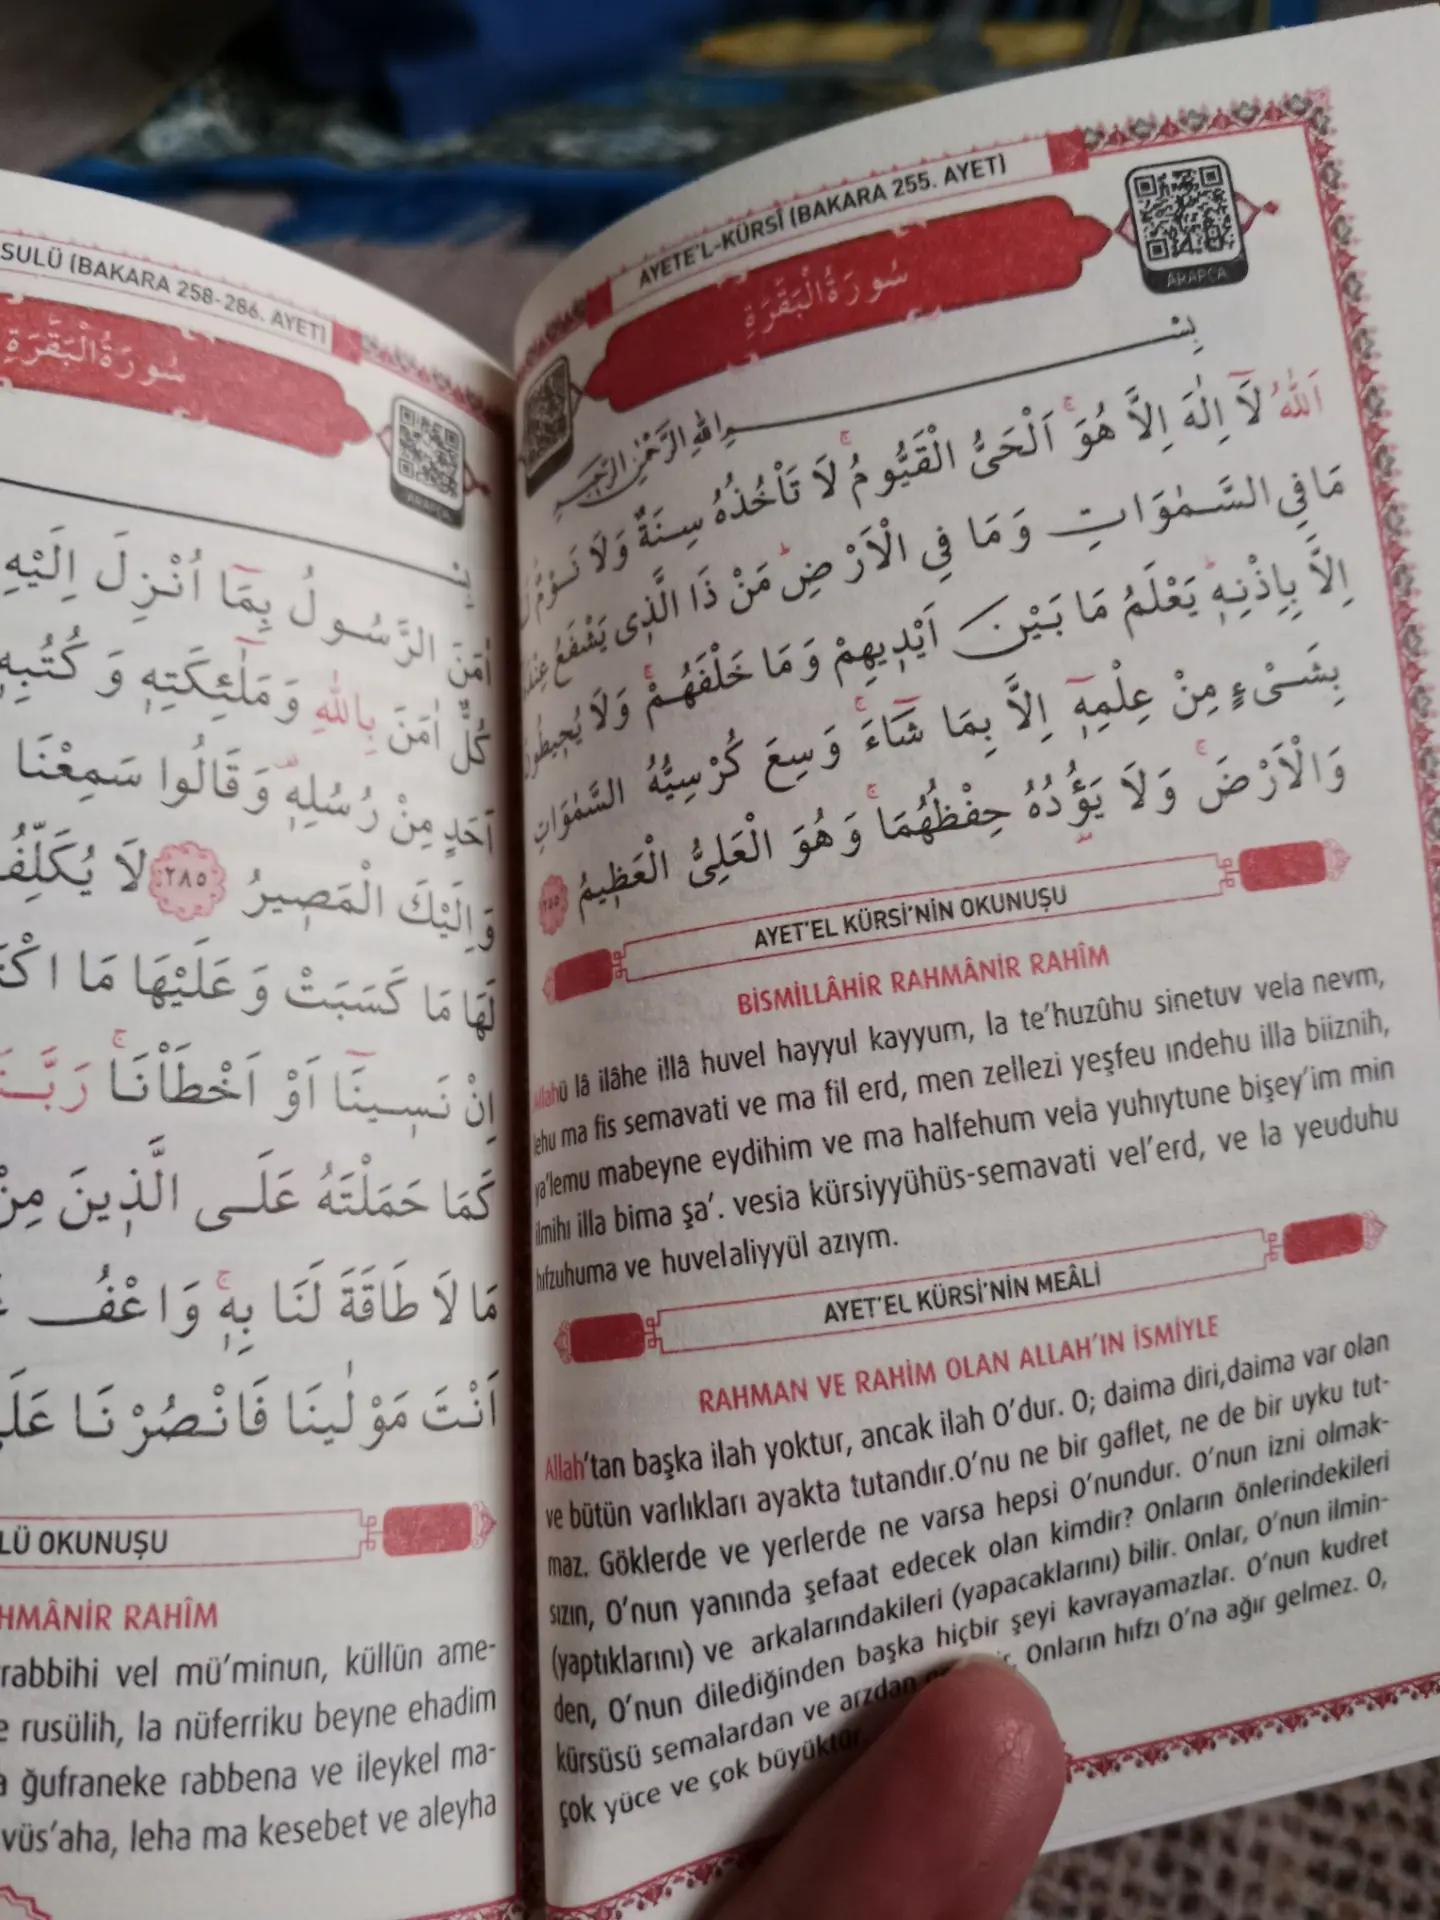 SULÜ (BAKARA 258-286. AYET)
سُورَةُ الْبَقَرَةِ
ARAPCA
اٰمَنَ الرَّسُولُ بِمَٓا اُنْزِلَ اِلَيْهِ
كُلٌّ اٰمَنَ بِاللّٰهِ وَمَلٰٓئِكَتِهٖ وَكُتُبِهٖ
اَحَدٍ مِنْ رُسُلِهٖ وَقَالُوا سَمِعْنَا
وَاِلَيْكَ الْمَصٖيرُ ٢٨٥ لَا يُكَلِّفُ
لَهَا مَا كَسَبَتْ وَعَلَيْهَا مَا
اِنْ نَسٖينَٓا اَوْ اَخْطَاْنَاۚ
كَمَا حَمَلْتَهُ عَلَى الَّذٖينَ مِنْ
مَا لَا طَاقَةَ لَنَا بِهٖۚ وَاعْفُ
اَنْتَ مَوْلٰينَا فَانْصُرْنَا
LÜ OKUNUŞU
HMÂNİR RAHÎM
rabbihi vel mü’minun, küllün ame-
e rusülih, la nüferriku beyne ehadim
ğufraneke rabbena ve ileykel ma-
vüs’aha, leha ma kesebet ve aleyha
AYETE’L-KÜRSÎ (BAKARA 255. AYET)
سُورَةُ الْبَقَرَةِ
ARAPCA
بِسْــــمِ اللّٰهِ الرَّحْمٰنِ الرَّحٖيمِ
اَللّٰهُ لَٓا اِلٰهَ اِلَّا هُوَۚ اَلْحَىُّ الْقَيُّومُۚ لَا تَاْخُذُهُ سِنَةٌ وَلَا نَوْمٌؕ
مَا فِى السَّمٰوَاتِ وَمَا فِى الْاَرْضِؕ مَنْ ذَا الَّذٖى يَشْفَعُ
اِلَّا بِاِذْنِهٖؕ يَعْلَمُ مَا بَيْنَ اَيْدٖيهِمْ وَمَا خَلْفَهُمْۚ وَلَا يُحٖيطُونَ
بِشَىْءٍ مِنْ عِلْمِهٖٓ اِلَّا بِمَا شَٓاءَۚ وَسِعَ كُرْسِيُّهُ السَّمٰوَاتِ
وَالْاَرْضَۚ وَلَا يَؤُ۫دُهُ حِفْظُهُمَاۚ وَهُوَ الْعَلِىُّ الْعَظٖيمُ ٢٥٥
AYET’EL KÜRSİ’NİN OKUNUŞU
BİSMİLLÂHİR RAHMÂNİR RAHÎM
Allahü lâ ilâhe illâ huvel hayyul kayyum, la te’huzûhu sinetuv vela nevm,
lehu ma fis semavati ve ma fil erd, men zellezi yeşfeu ındehu illa biiznih,
ya’lemu mabeyne eydihim ve ma halfehum vela yuhıytune bişey’im min
ilmihı illa bima şa’. vesia kürsiyyühüs-semavati vel’erd, ve la yeuduhu
hıfzuhuma ve huvelaliyyül azıym.
AYET’EL KÜRSİ’NİN MEÂLİ
RAHMAN VE RAHİM OLAN ALLAH’IN İSMİYLE
Allah’tan başka ilah yoktur, ancak ilah O’dur. O; daima diri,daima var olan
ve bütün varlıkları ayakta tutandır.O’nu ne bir gaflet, ne de bir uyku tut-
maz. Göklerde ve yerlerde ne varsa hepsi O’nundur. O’nun izni olmak-
sızın, O’nun yanında şefaat edecek olan kimdir? Onların önlerindekileri
(yaptıklarını) ve arkalarındakileri (yapacaklarını) bilir. Onlar, O’nun ilmin-
den, O’nun dilediğinden başka hiçbir şeyi kavrayamazlar. O’nun kudret
kürsüsü semalardan ve arzdan Onların hıfzı O’na ağır gelmez. O,
çok yüce ve çok büyüktür.